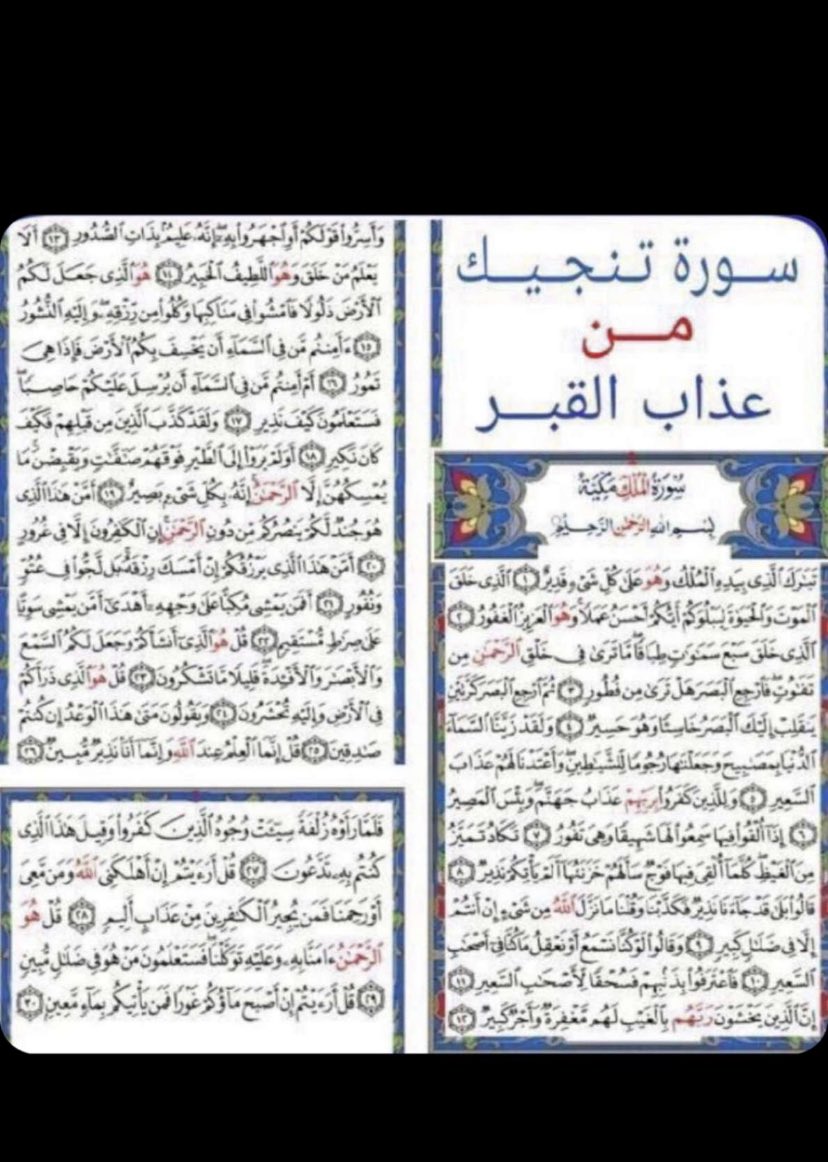 سورة تنجيك
من
عذاب القبر
سُورَةُ المُلْكِ مَكِيَّة
بِسْمِ اللَّهِ الرَّحْمَٰنِ الرَّحِيمِ
تَبَٰرَكَ ٱلَّذِى بِيَدِهِ ٱلْمُلْكُ وَهُوَ عَلَىٰ كُلِّ شَىْءٍ قَدِيرٌ ﴿١﴾ ٱلَّذِى خَلَقَ
ٱلْمَوْتَ وَٱلْحَيَوٰةَ لِيَبْلُوَكُمْ أَيُّكُمْ أَحْسَنُ عَمَلًا وَهُوَ ٱلْعَزِيزُ ٱلْغَفُورُ ﴿٢﴾
ٱلَّذِى خَلَقَ سَبْعَ سَمَٰوَٰتٍ طِبَاقًا مَّا تَرَىٰ فِى خَلْقِ ٱلرَّحْمَٰنِ مِن
تَفَٰوُتٍ فَٱرْجِعِ ٱلْبَصَرَ هَلْ تَرَىٰ مِن فُطُورٍ ﴿٣﴾ ثُمَّ ٱرْجِعِ ٱلْبَصَرَ كَرَّتَيْنِ
يَنقَلِبْ إِلَيْكَ ٱلْبَصَرُ خَاسِئًا وَهُوَ حَسِيرٌ ﴿٤﴾ وَلَقَدْ زَيَّنَّا ٱلسَّمَآءَ
ٱلدُّنْيَا بِمَصَٰبِيحَ وَجَعَلْنَٰهَا رُجُومًا لِّلشَّيَٰطِينِ وَأَعْتَدْنَا لَهُمْ عَذَابَ
ٱلسَّعِيرِ ﴿٥﴾ وَلِلَّذِينَ كَفَرُوا۟ بِرَبِّهِمْ عَذَابُ جَهَنَّمَ وَبِئْسَ ٱلْمَصِيرُ
﴿٦﴾ إِذَآ أُلْقُوا۟ فِيهَا سَمِعُوا۟ لَهَا شَهِيقًا وَهِىَ تَفُورُ ﴿٧﴾ تَكَادُ تَمَيَّزُ
مِنَ ٱلْغَيْظِ كُلَّمَآ أُلْقِىَ فِيهَا فَوْجٌ سَأَلَهُمْ خَزَنَتُهَآ أَلَمْ يَأْتِكُمْ نَذِيرٌ ﴿٨﴾
قَالُوا۟ بَلَىٰ قَدْ جَآءَنَا نَذِيرٌ فَكَذَّبْنَا وَقُلْنَا مَا نَزَّلَ ٱللَّهُ مِن شَىْءٍ إِنْ أَنتُمْ
إِلَّا فِى ضَلَٰلٍ كَبِيرٍ ﴿٩﴾ وَقَالُوا۟ لَوْ كُنَّا نَسْمَعُ أَوْ نَعْقِلُ مَا كُنَّا فِىٓ أَصْحَٰبِ
ٱلسَّعِيرِ ﴿١٠﴾ فَٱعْتَرَفُوا۟ بِذَنۢبِهِمْ فَسُحْقًا لِّأَصْحَٰبِ ٱلسَّعِيرِ ﴿١١﴾
إِنَّ ٱلَّذِينَ يَخْشَوْنَ رَبَّهُم بِٱلْغَيْبِ لَهُم مَّغْفِرَةٌ وَأَجْرٌ كَبِيرٌ ﴿١٢﴾
وَأَسِرُّوا۟ قَوْلَكُمْ أَوِ ٱجْهَرُوا۟ بِهِۦٓ إِنَّهُۥ عَلِيمٌۢ بِذَاتِ ٱلصُّدُورِ ﴿١٣﴾ أَلَا
يَعْلَمُ مَنْ خَلَقَ وَهُوَ ٱللَّطِيفُ ٱلْخَبِيرُ ﴿١٤﴾ هُوَ ٱلَّذِى جَعَلَ لَكُمُ
ٱلْأَرْضَ ذَلُولًا فَٱمْشُوا۟ فِى مَنَاكِبِهَا وَكُلُوا۟ مِن رِّزْقِهِۦ وَإِلَيْهِ ٱلنُّشُورُ
﴿١٥﴾ ءَأَمِنتُم مَّن فِى ٱلسَّمَآءِ أَن يَخْسِفَ بِكُمُ ٱلْأَرْضَ فَإِذَا هِىَ
تَمُورُ ﴿١٦﴾ أَمْ أَمِنتُم مَّن فِى ٱلسَّمَآءِ أَن يُرْسِلَ عَلَيْكُمْ حَاصِبًا
فَسَتَعْلَمُونَ كَيْفَ نَذِيرِ ﴿١٧﴾ وَلَقَدْ كَذَّبَ ٱلَّذِينَ مِن قَبْلِهِمْ فَكَيْفَ
كَانَ نَكِيرِ ﴿١٨﴾ أَوَلَمْ يَرَوْا۟ إِلَى ٱلطَّيْرِ فَوْقَهُمْ صَٰٓفَّٰتٍ وَيَقْبِضْنَ مَا
يُمْسِكُهُنَّ إِلَّا ٱلرَّحْمَٰنُ إِنَّهُۥ بِكُلِّ شَىْءٍۭ بَصِيرٌ ﴿١٩﴾ أَمَّنْ هَٰذَا ٱلَّذِى
هُوَ جُندٌ لَّكُمْ يَنصُرُكُم مِّن دُونِ ٱلرَّحْمَٰنِ إِنِ ٱلْكَٰفِرُونَ إِلَّا فِى غُرُورٍ
﴿٢٠﴾ أَمَّنْ هَٰذَا ٱلَّذِى يَرْزُقُكُمْ إِنْ أَمْسَكَ رِزْقَهُۥ بَل لَّجُّوا۟ فِى عُتُوٍّ
وَنُفُورٍ ﴿٢١﴾ أَفَمَن يَمْشِى مُكِبًّا عَلَىٰ وَجْهِهِۦٓ أَهْدَىٰٓ أَمَّن يَمْشِى سَوِيًّا
عَلَىٰ صِرَٰطٍ مُّسْتَقِيمٍ ﴿٢٢﴾ قُلْ هُوَ ٱلَّذِىٓ أَنشَأَكُمْ وَجَعَلَ لَكُمُ ٱلسَّمْعَ
وَٱلْأَبْصَٰرَ وَٱلْأَفْـِٔدَةَ قَلِيلًا مَّا تَشْكُرُونَ ﴿٢٣﴾ قُلْ هُوَ ٱلَّذِى ذَرَأَكُمْ
فِى ٱلْأَرْضِ وَإِلَيْهِ تُحْشَرُونَ ﴿٢٤﴾ وَيَقُولُونَ مَتَىٰ هَٰذَا ٱلْوَعْدُ إِن كُنتُمْ
صَٰدِقِينَ ﴿٢٥﴾ قُلْ إِنَّمَا ٱلْعِلْمُ عِندَ ٱللَّهِ وَإِنَّمَآ أَنَا۠ نَذِيرٌ مُّبِينٌ ﴿٢٦﴾
فَلَمَّا رَأَوْهُ زُلْفَةً سِيٓـَٔتْ وُجُوهُ ٱلَّذِينَ كَفَرُوا۟ وَقِيلَ هَٰذَا ٱلَّذِى
كُنتُم بِهِۦ تَدَّعُونَ ﴿٢٧﴾ قُلْ أَرَءَيْتُمْ إِنْ أَهْلَكَنِىَ ٱللَّهُ وَمَن مَّعِىَ
أَوْ رَحِمَنَا فَمَن يُجِيرُ ٱلْكَٰفِرِينَ مِنْ عَذَابٍ أَلِيمٍ ﴿٢٨﴾ قُلْ هُوَ
ٱلرَّحْمَٰنُ ءَامَنَّا بِهِۦ وَعَلَيْهِ تَوَكَّلْنَا فَسَتَعْلَمُونَ مَنْ هُوَ فِى ضَلَٰلٍ مُّبِينٍ
﴿٢٩﴾ قُلْ أَرَءَيْتُمْ إِنْ أَصْبَحَ مَآؤُكُمْ غَوْرًا فَمَن يَأْتِيكُم بِمَآءٍ مَّعِينٍۭ ﴿٣٠﴾